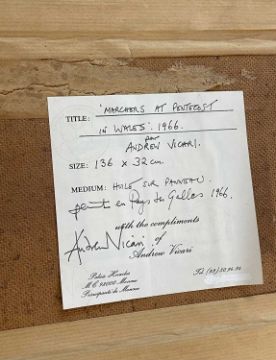 TITLE: 'MARCHERS AT PENTECOST
IN WALES'. 1966.
par
ANDREW VICARI.
SIZE: 136 x 32 cm.
MEDIUM: HUILE SUR PANNEAU.
peint en Pays de Galles 1966.
with the compliments
of
Andrew Vicari
Andrew Vicari
M.C. 98000 Monaco
Principauté de Monaco